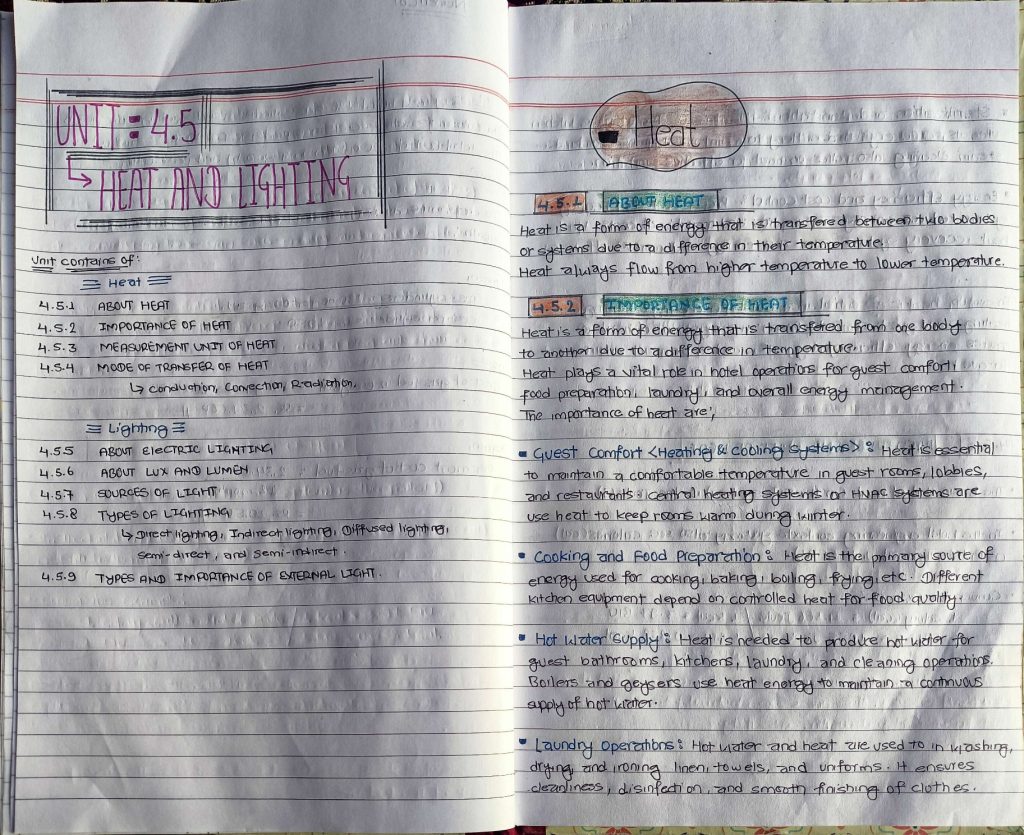 UNIT = 4.5
↳ HEAT AND LIGHTING
Unit contains of:
Heat
4.5.1 ABOUT HEAT
4.5.2 IMPORTANCE OF HEAT
4.5.3 MEASUREMENT UNIT OF HEAT
4.5.4 MODE OF TRANSFER OF HEAT
↳ Conduation, Convection, Radiation,
Lighting
4.5.5 ABOUT ELECTRIC LIGHTING
4.5.6 ABOUT LUX AND LUMEN
4.5.7 SOURCES OF LIGHT
4.5.8 TYPES OF LIGHTING
↳ Direct lighting, Indirect lighting, Diffused lighting,
Semi-direct, and Semi-indirect.
4.5.9 TYPES AND IMPORTANCE OF EXTERNAL LIGHT.
Heat
4.5.1 ABOUT HEAT
Heat is a form of energy that is transfered between two bodies
or systems due to a difference in their temperature.
Heat always flow from higher temperature to lower temperature.
4.5.2 IMPORTANCE OF HEAT
Heat is a form of energy that is transfered from one body
to another due to a difference in temperature.
Heat plays a vital role in hotel operations for guest comfort,
food preparation, laundry, and overall energy management.
The importance of heat are;
• Guest Comfort <Heating & cooling Systems> : Heat is essential
to maintain a comfortable temperature in guest rooms, lobbies,
and restaurants. central heating systems or HVAC systems are
use heat to keep rooms warm during winter.
• Cooking and Food Preparation : Heat is the primary soure of
energy used for cooking, baking, boiling, frying, etc. Different
kitchen equipment depend on controlled heat for food quality.
• Hot Water Supply : Heat is needed to produce hot water for
guest bathrooms, kitchens, laundry, and cleaning operations.
Boilers and geysers use heat energy to maintain a continuous
supply of hot water.
• Laundry Operations : Hot water and heat are used to in washing,
drying, and ironing linen, towels, and uniforms. It ensures
cleanliness, disinfection, and smooth finishing of clothes.